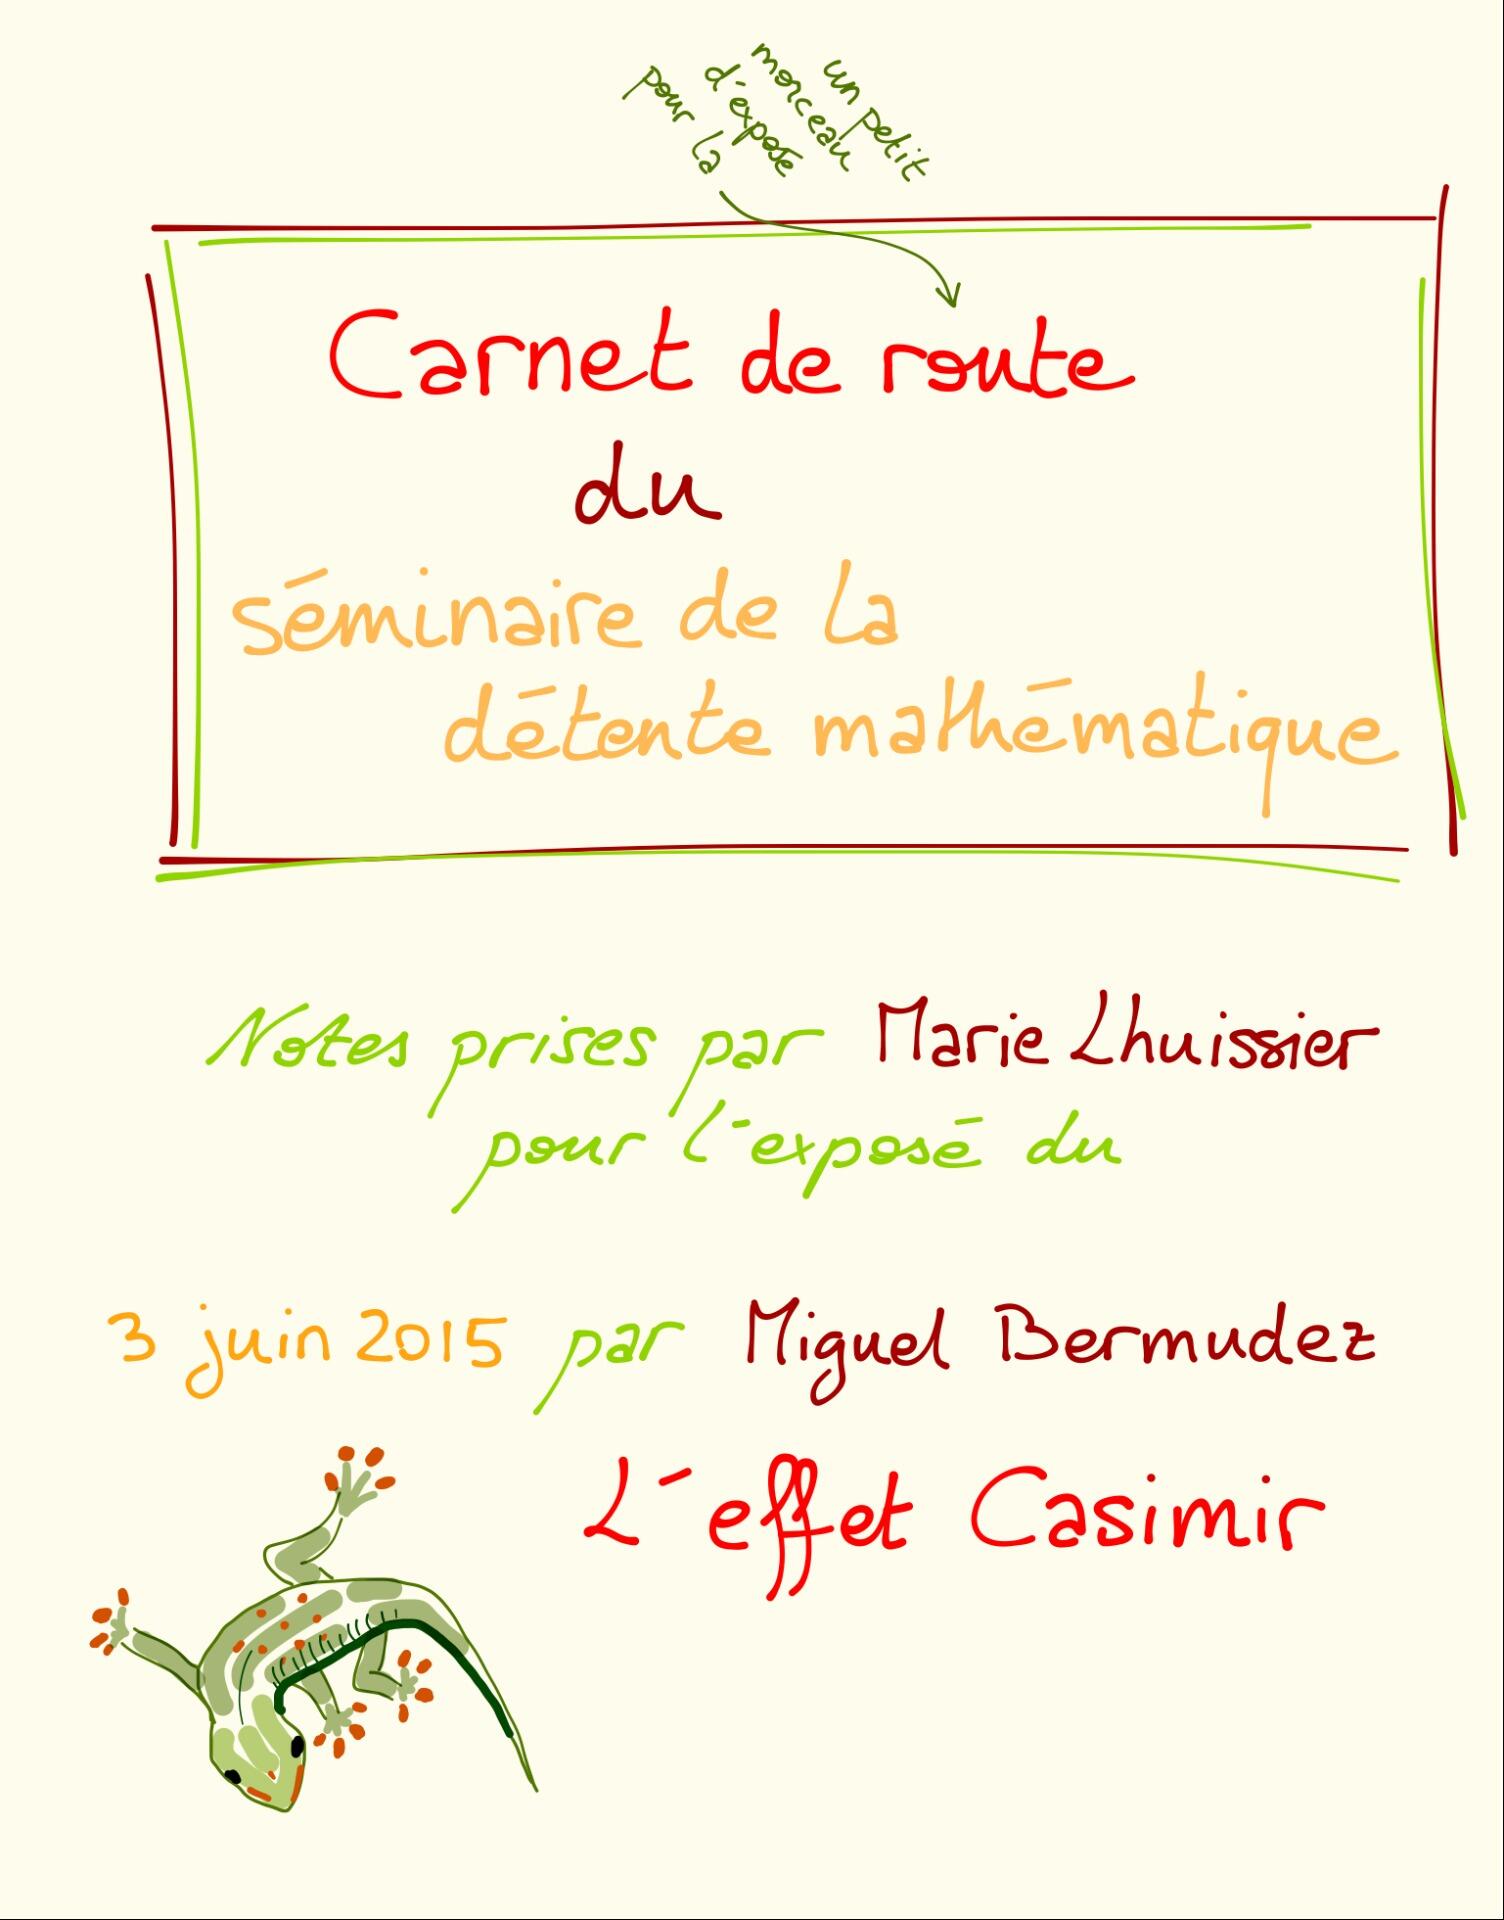 un petit
morceau
d'exposé
pour la
Carnet de route
du
séminaire de la
détente mathématique
Notes prises par Marie Lhuissier
pour l'exposé du
3 juin 2015 par Miguel Bermudez
L'effet Casimir